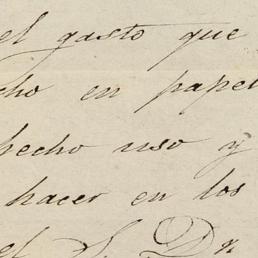 el gasto que
cho en papel
hecho uso y
hacer en los
el S. Dn